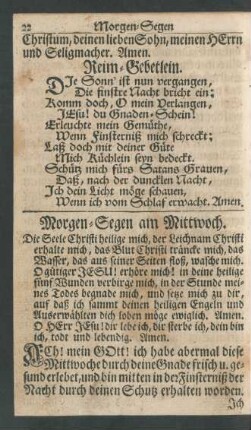 22 Morgen-Segen
Christum, deinen lieben Sohn, meinen HErrn
und Seligmacher. Amen.
Reim-Gebetlein.
DIe Sonn' ist nun vergangen,
Die finstre Nacht bricht ein;
Komm doch, O mein Verlangen,
JEsu! du Gnaden-Schein!
Erleuchte mein Gemüthe,
Wenn Finsterniß mich schreckt;
Laß doch mit deiner Güte
Mich Küchlein seyn bedeckt.
Schütz mich fürs Satans Grauen,
Daß, nach der duncklen Nacht,
Ich dein Licht möge schauen,
Wenn ich vom Schlaf erwacht. Amen.
Morgen-Segen am Mittwoch.
Die Seele Christi heilige mich, der Leichnam Christi
erhalte mich, das Blut Christi träncke mich, das
Wasser, das aus seiner Seiten floß, wasche mich.
O gütiger JESU! erhöre mich! in deine heilige
fünf Wunden verbirge mich, in der Stunde mei-
nes Todes bewahr mich, und setze mich zu dir,
auf daß ich sammt deinen heiligen Engeln und
Auserwählten dich loben möge ewiglich. Amen.
O HErr JEsu! dir lebe ich, dir sterbe ich, dein bin
ich, todt und lebendig. Amen.
ACh! mein GOtt! ich habe abermal diese
Mittwoche durch deine Gnade frisch u. ge-
sund erlebet, und bin mitten in der Finsterniß der
Nacht durch deinen Schutz erhalten worden.
Ich